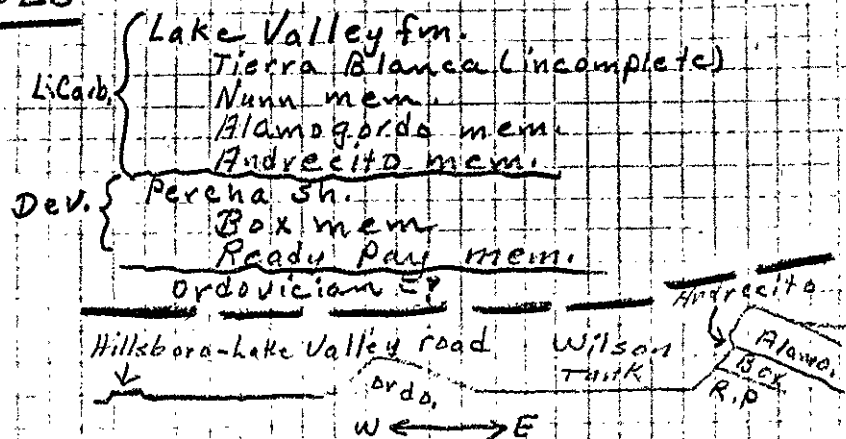 Lake Valley fm.
Tierra Blanca (incomplete)
L. Carb.
Nunn mem.
Alamogordo mem.
Andrecito mem.
Dev.
Percha Sh.
Box mem.
Ready Pay mem.
Ordovician
Andrecito
Hillsboro-Lake Valley road
Wilson Tank
Alamo.
Box
R.P
Ordo.
W E